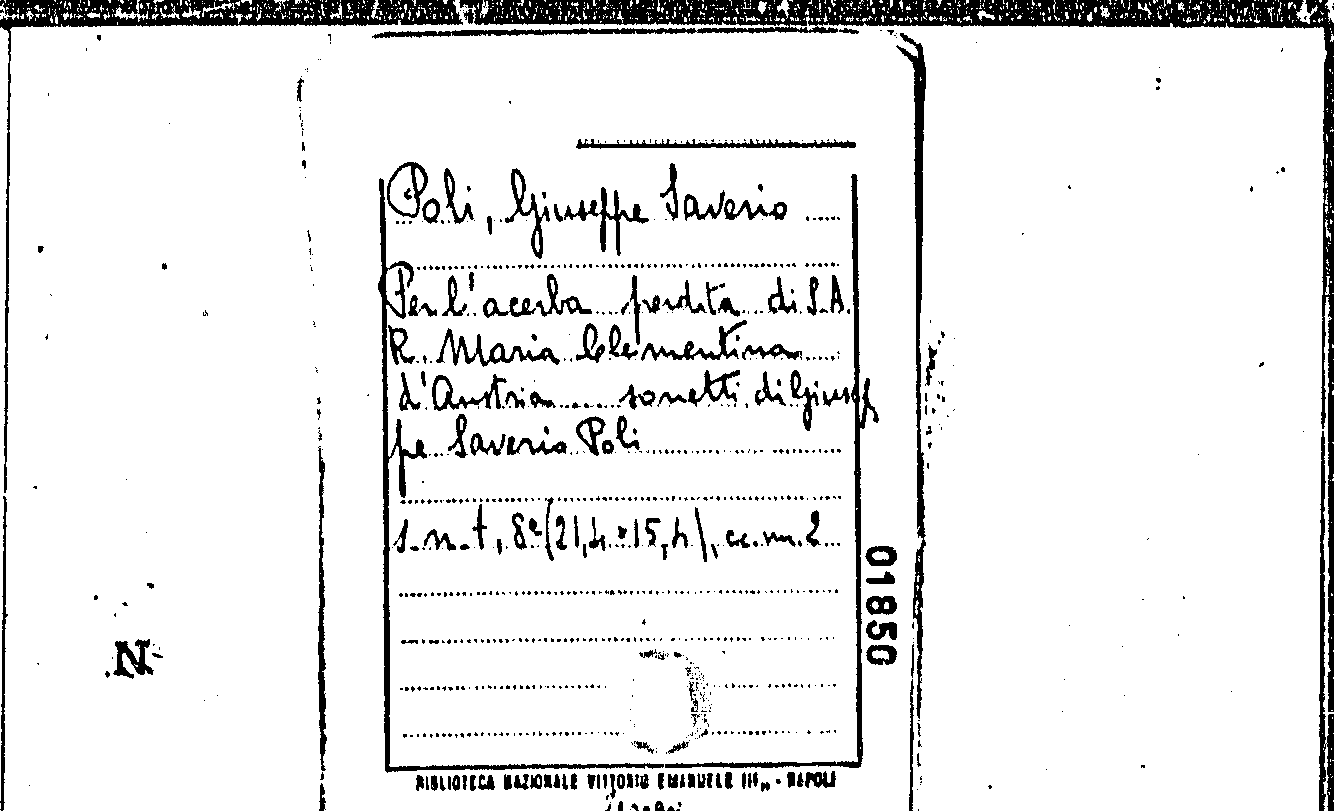 Poli, Giuseppe Saverio
Per l'acerba perdita di S.A.
R. Maria Clementina
d'Austria .... sonetti di Giusep
pe Saverio Poli
s.n.t, 8º (21,4 × 15,4), cc.nn. 2
01850
N
BIBLIOTECA NAZIONALE VITTORIO EMANUELE III„ - NAPOLI